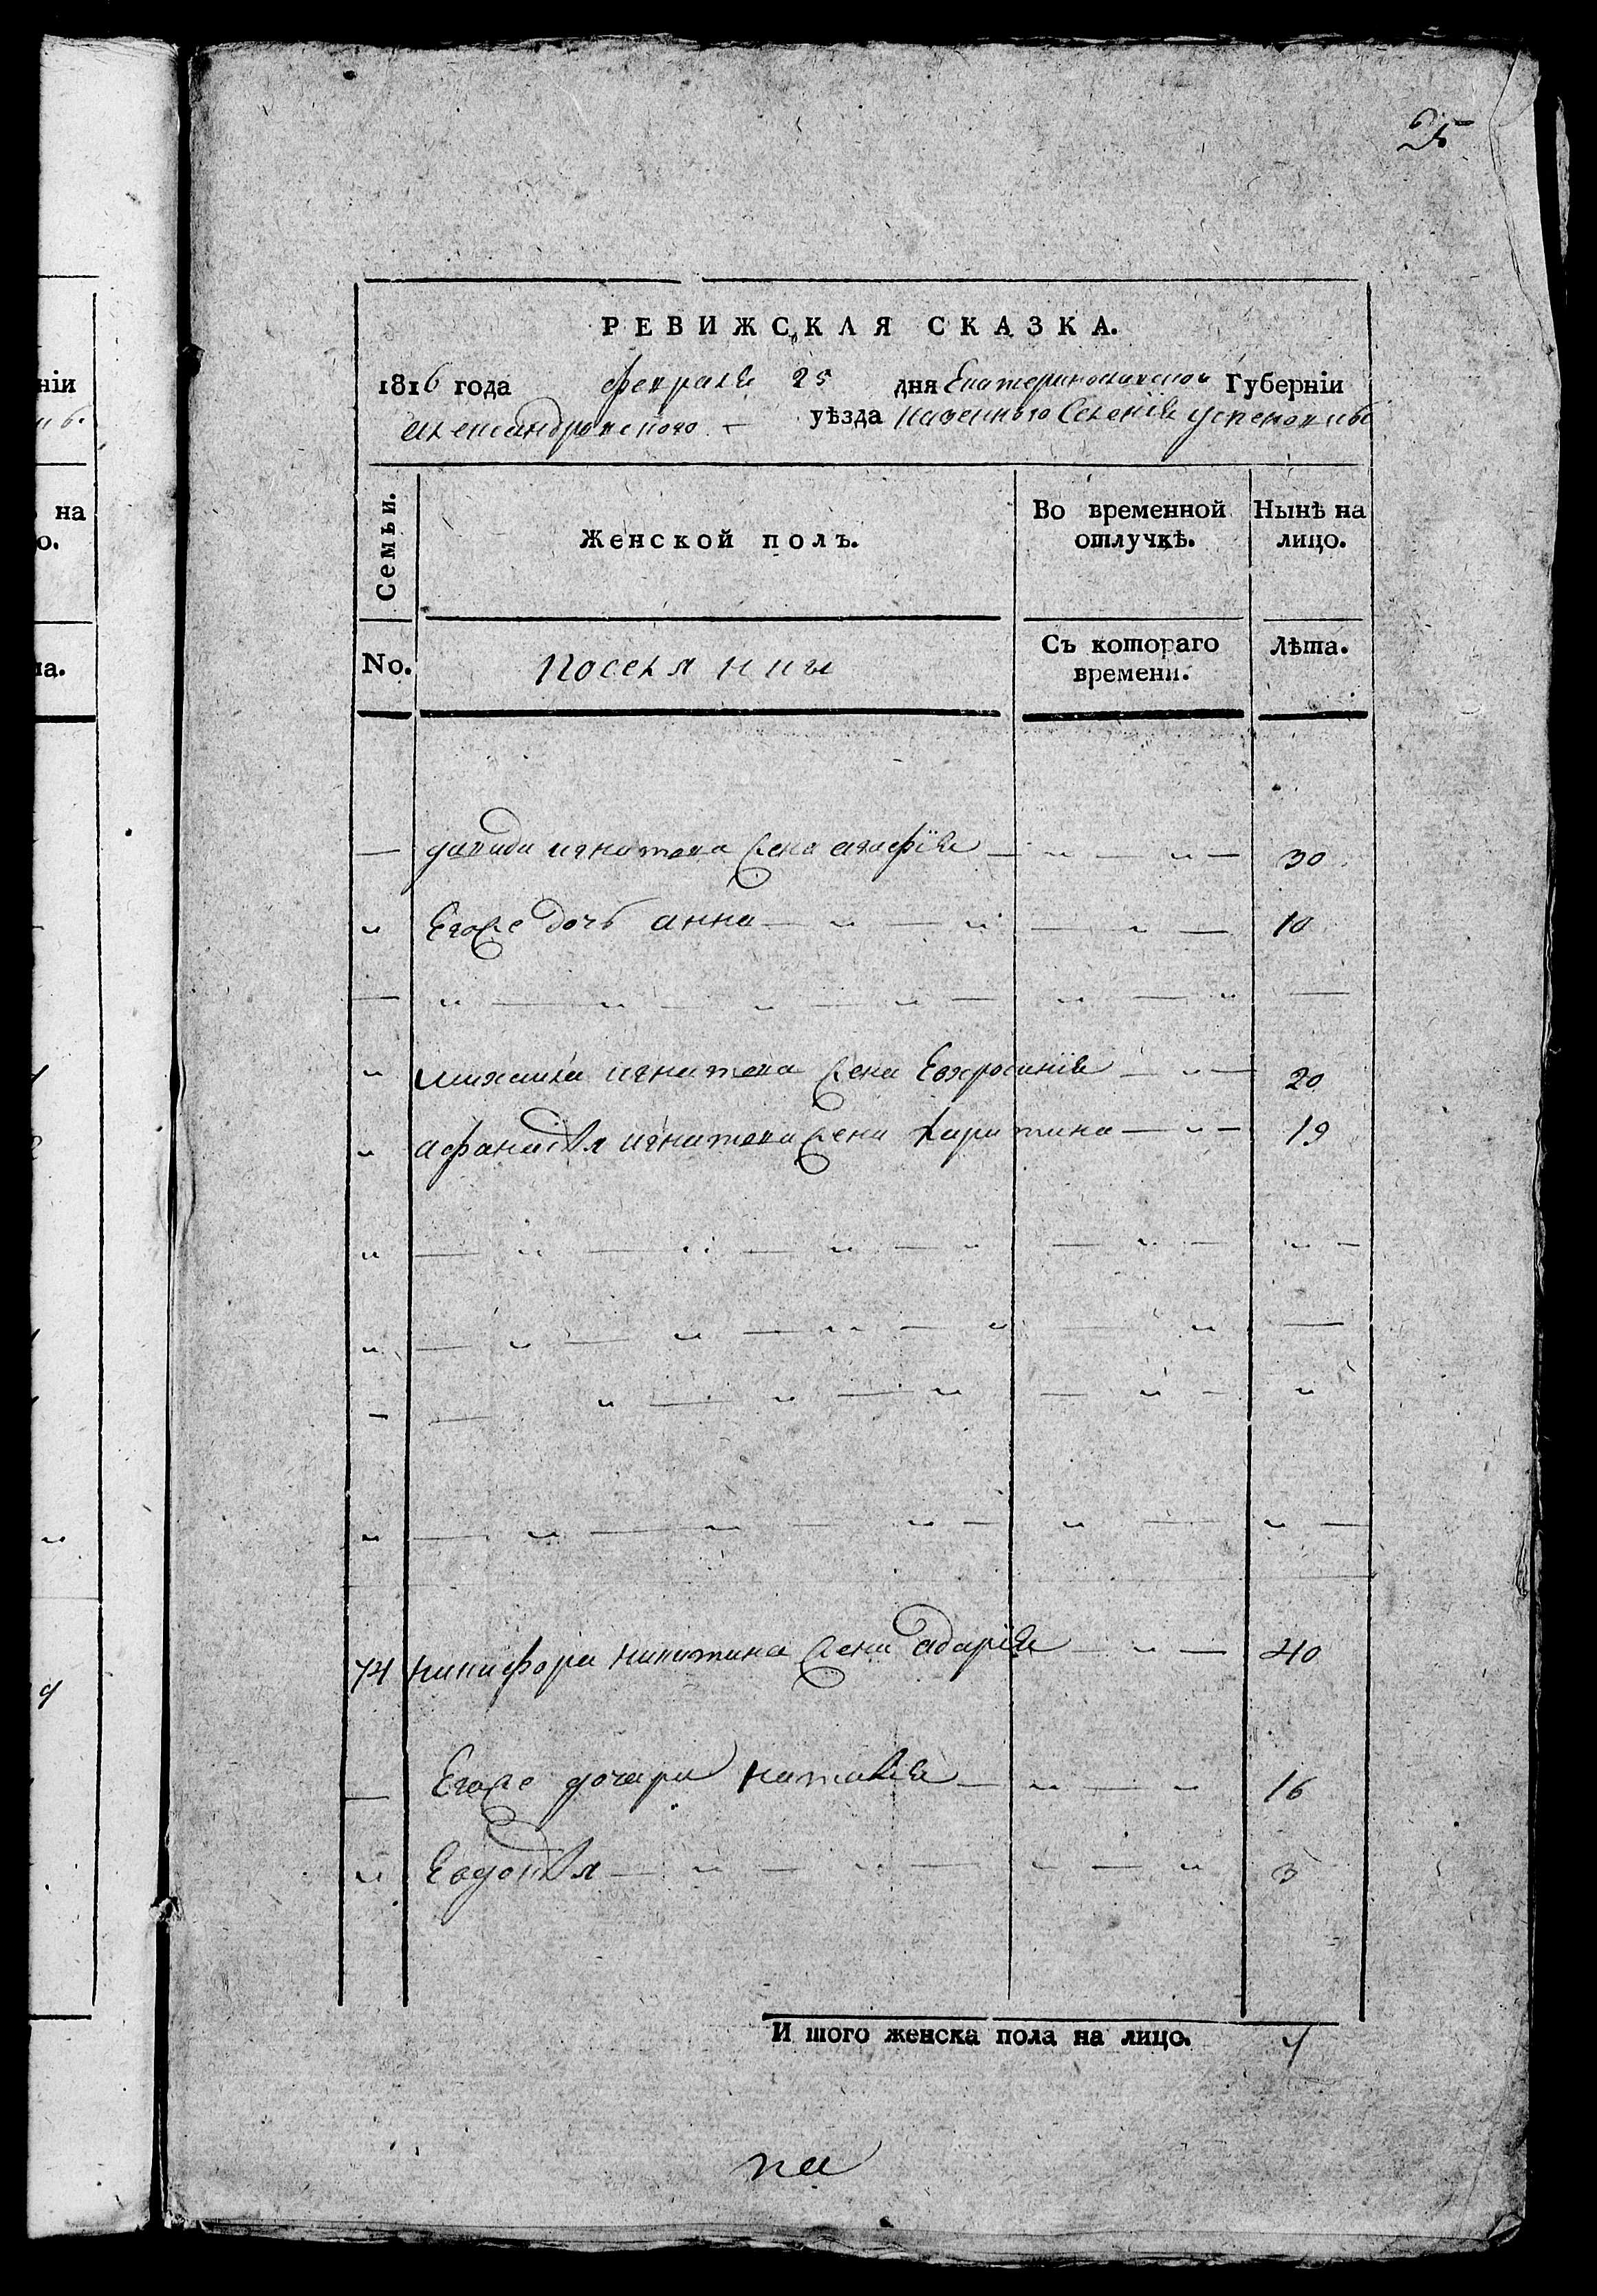 25
РЕВИЖСКАЯ СКАЗКА.
1816 года февраля 25 дня Екатеринославской Губерніи
Александровского уѣзда казенного Селения Успеновкы
Семьи.
Женской полъ.
Во временной отлучкѣ.
Нынѣ на лицо.
No.
поселяницы
Съ котораго времени.
Лѣта.
давида игнатова жена агафия 30
Егоже дочь анна 10
михаила игнатова жена Евхросиния 20
афанасья игнатова жена харитина 19
74 никифора никитина жена дария 40
Егоже дочери наталия 16
Евдокия 3
Итого женска пола на лицо. 7